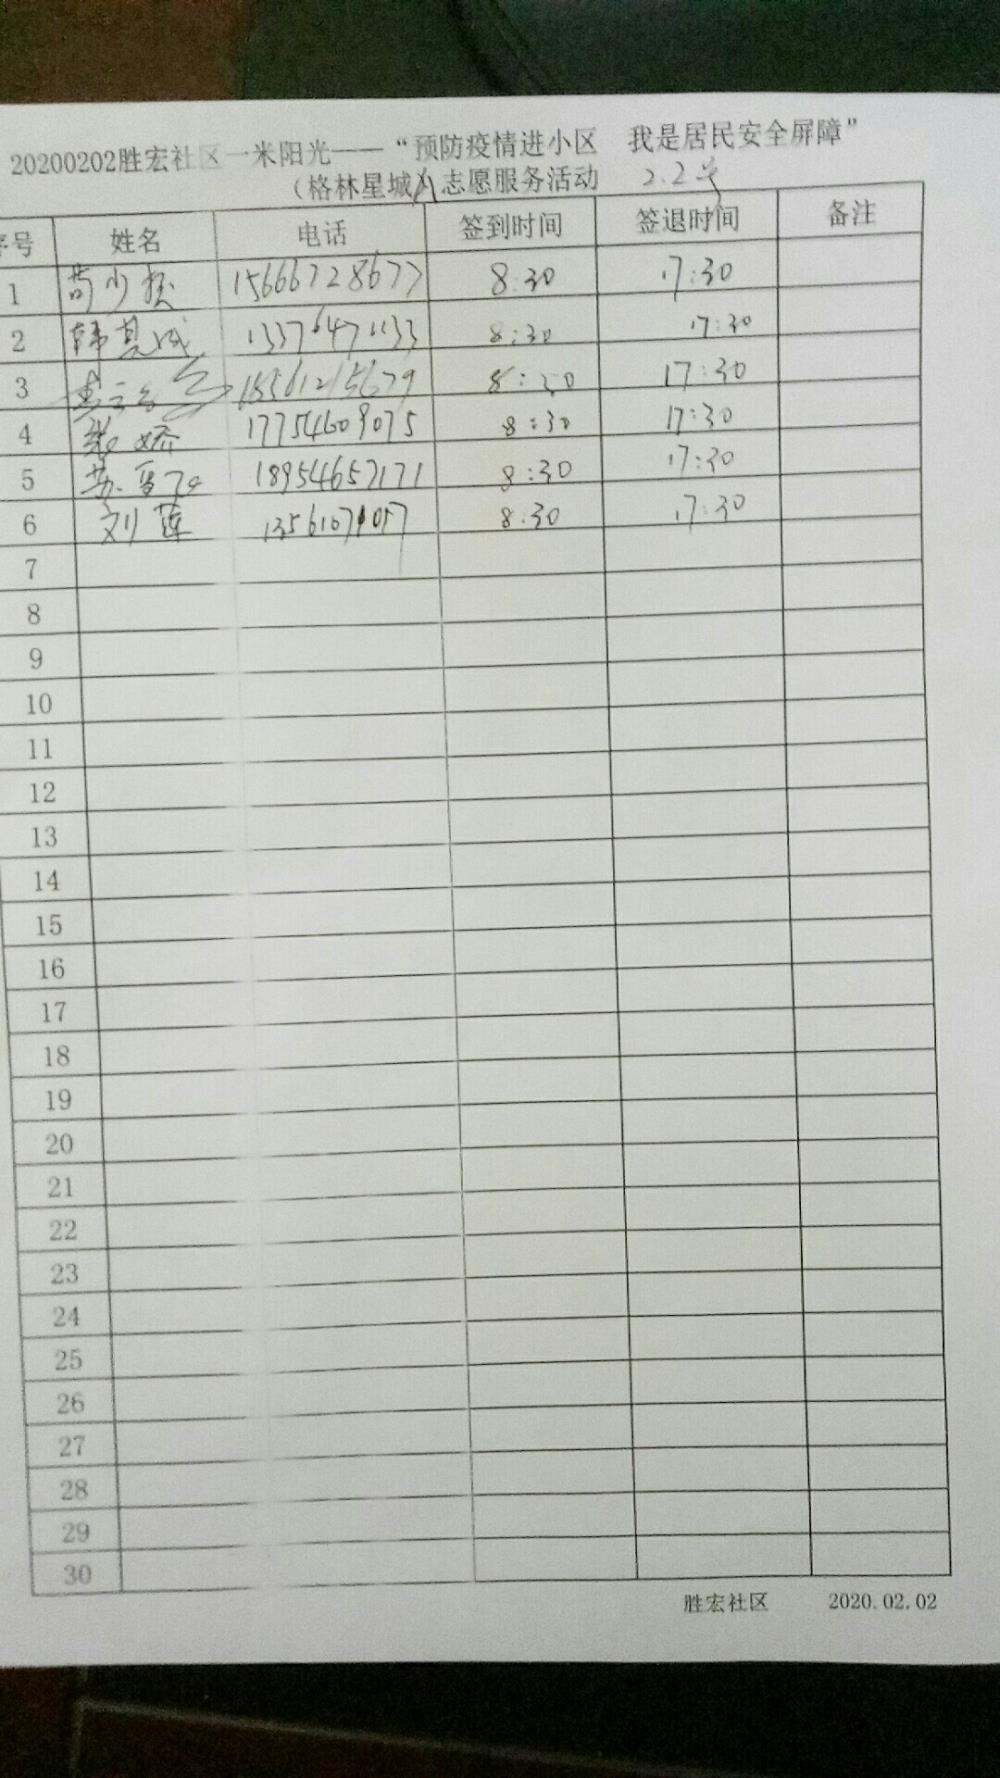 20200202胜宏社区一米阳光——“预防疫情进小区 我是居民安全屏障”
（格林星城）志愿服务活动 2.2号
序号 姓名 电话 签到时间 签退时间 备注
1 15666728677 8:30 17:30
2 韩其成 13376471133 8:30 17:30
3 18561215679 8:30 17:30
4 娇 17754609075 8:30 17:30
5 苏 18954657171 8:30 17:30
6 刘莲 8:30 17:30
7
8
9
10
11
12
13
14
15
16
17
18
19
20
21
22
23
24
25
26
27
28
29
30
胜宏社区 2020.02.02